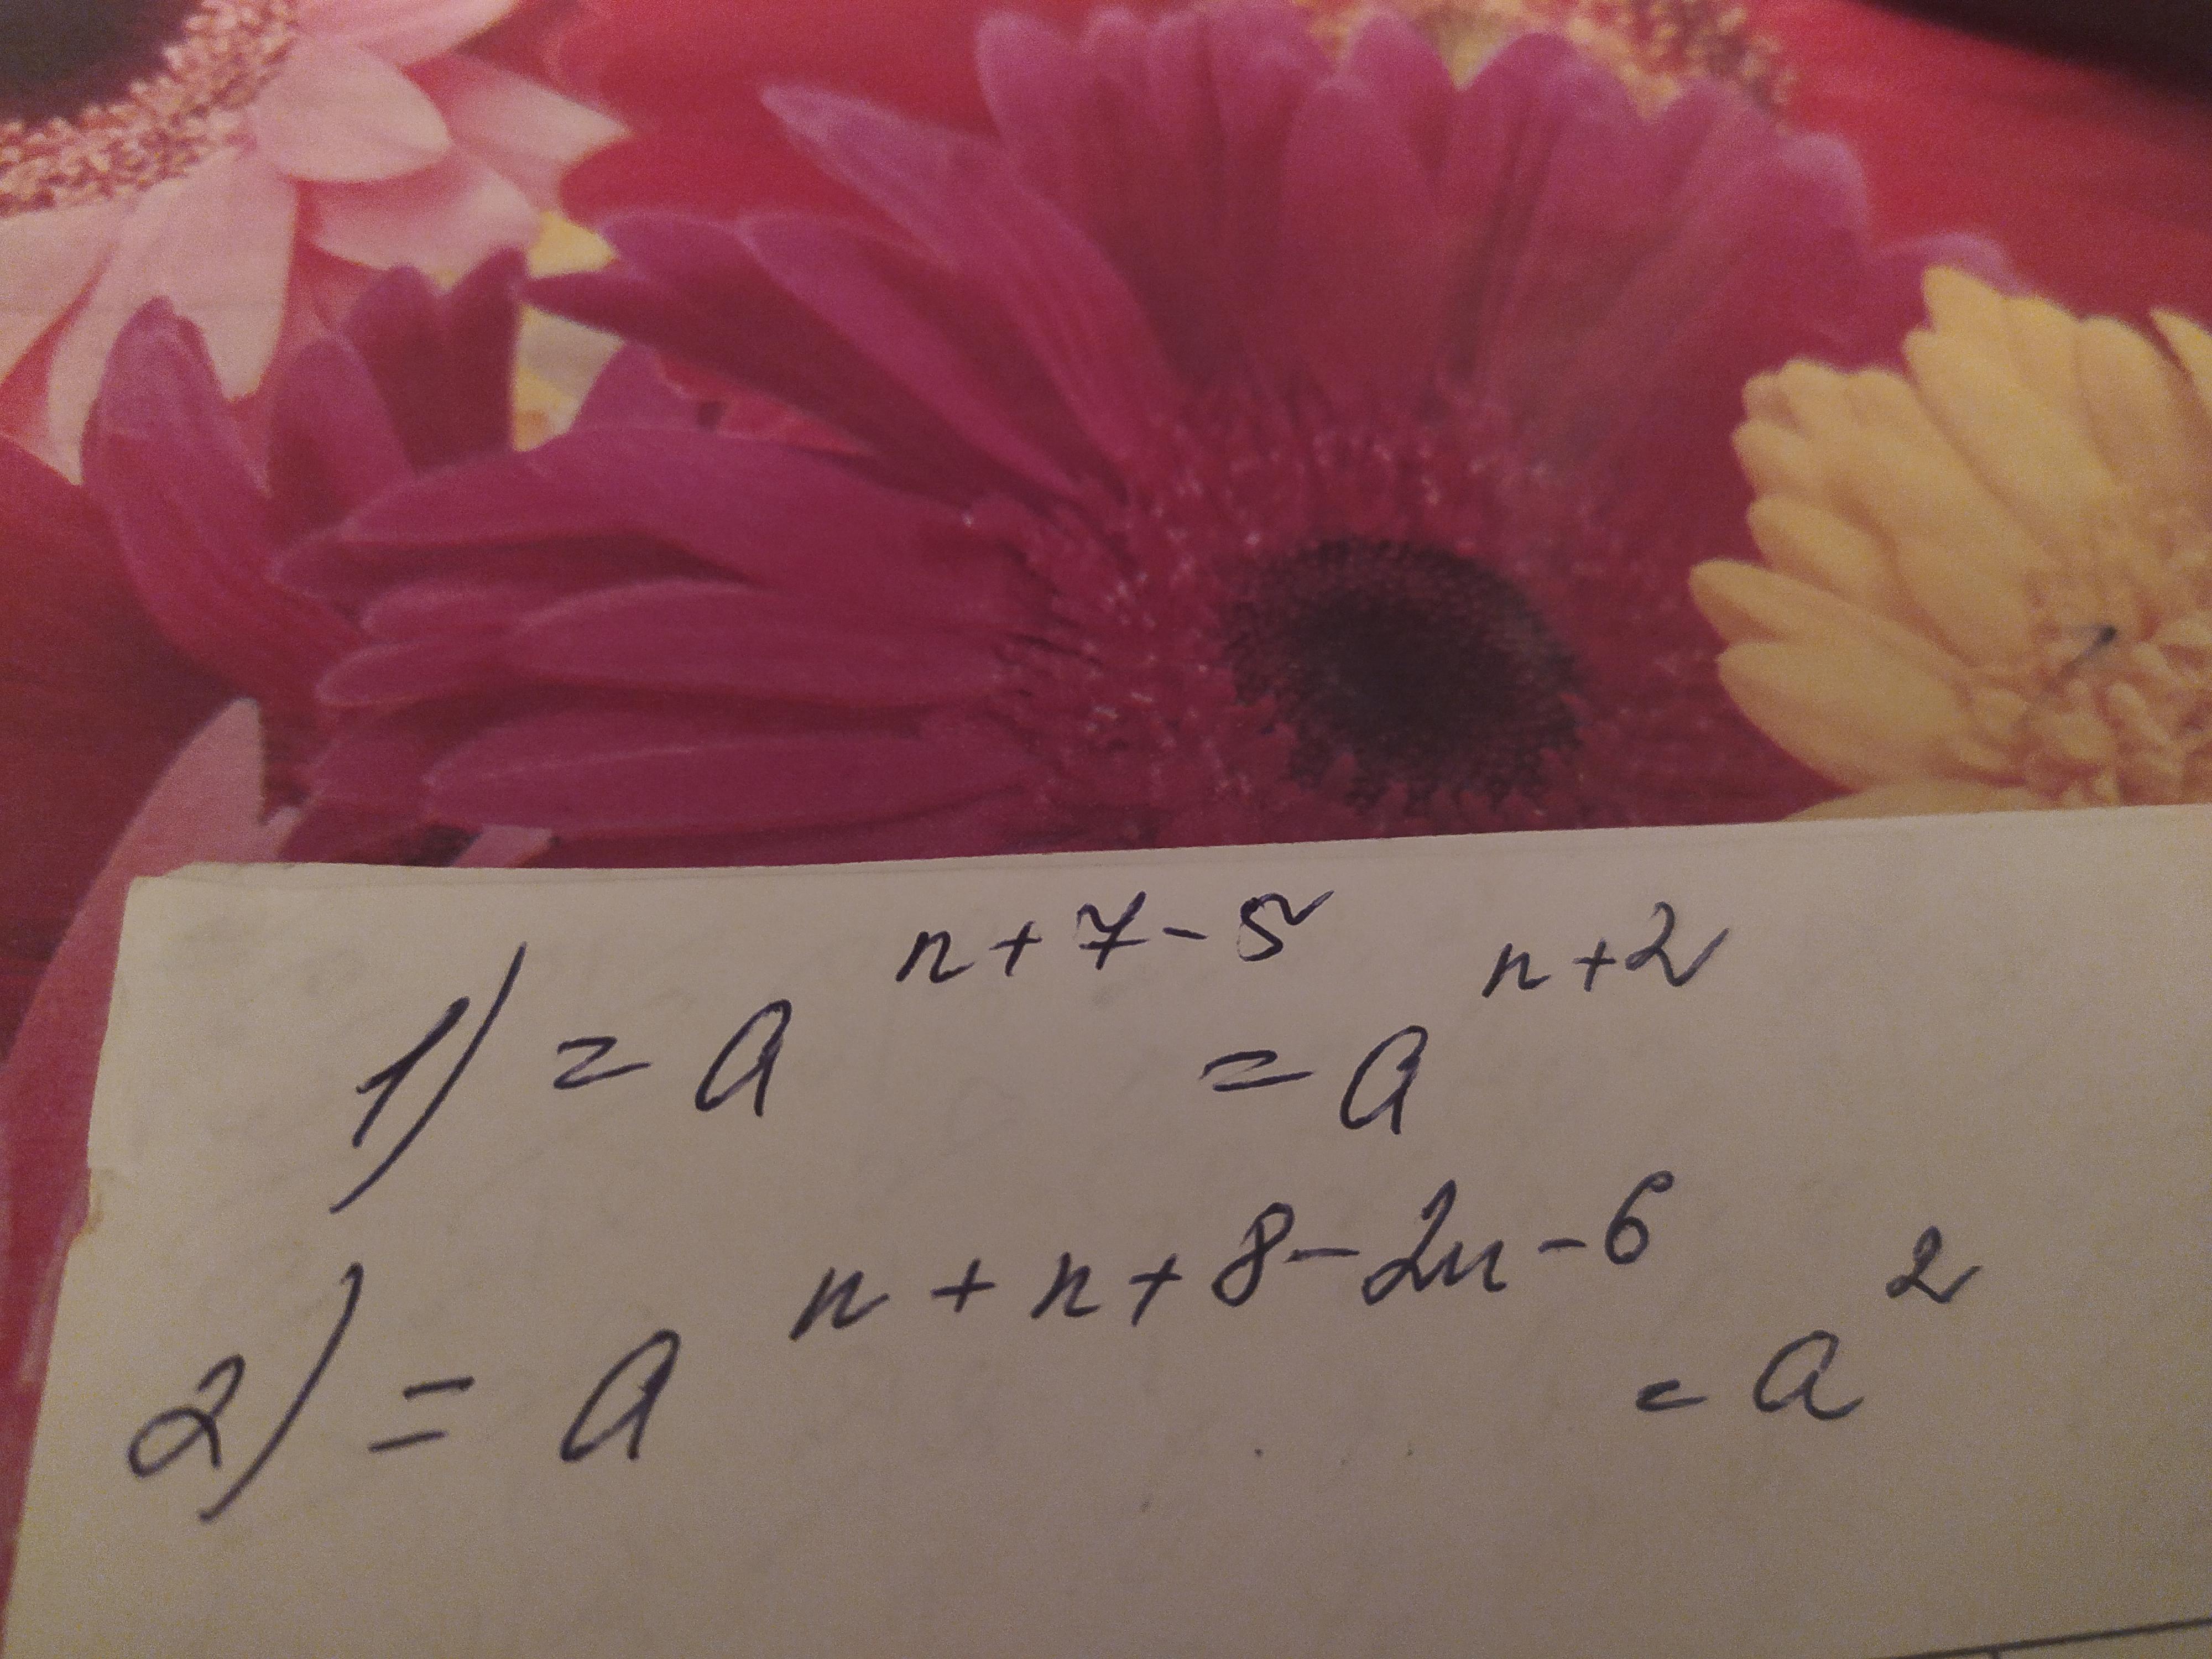 1) = a^{n+7-5} = a^{n+2}
2) = a^{n+n+8-2n-6} = a^2